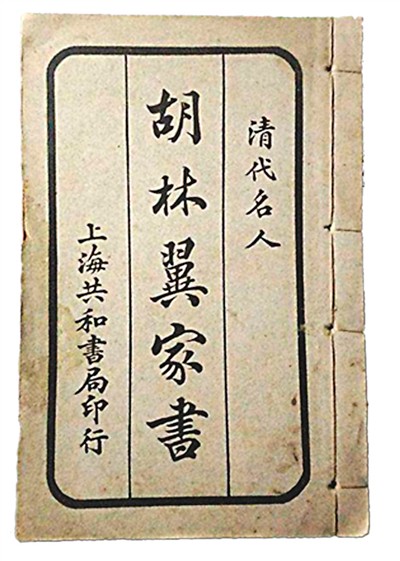 清代名人
胡林翼家書
上海共和書局印行